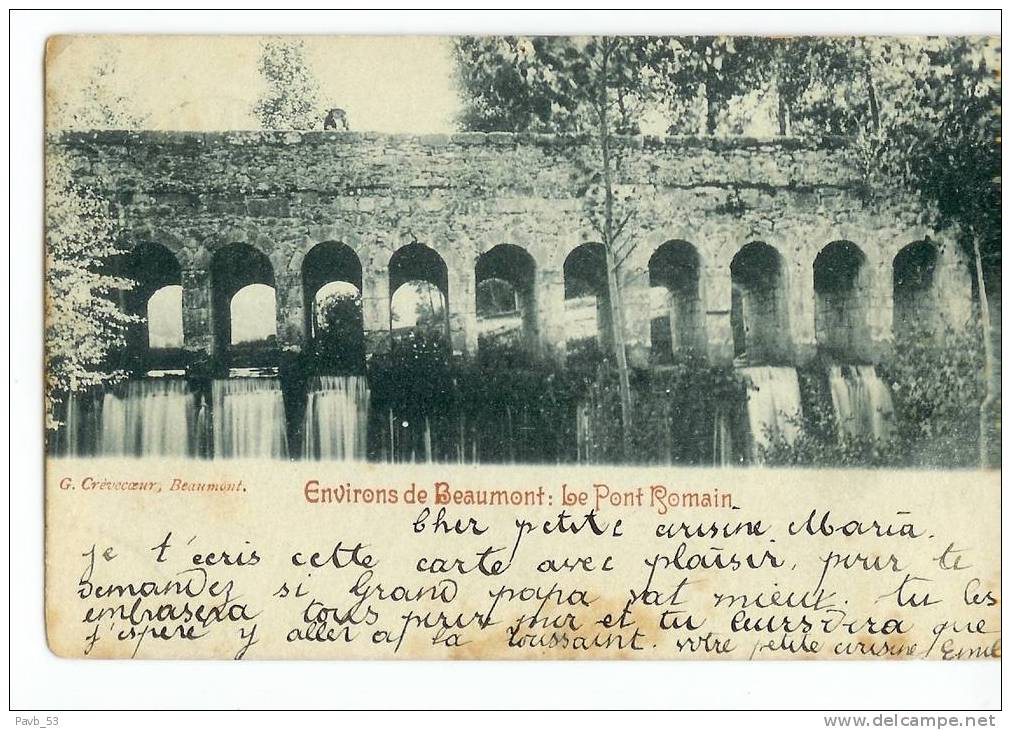 G. Crèvecœur, Beaumont.
Environs de Beaumont: Le Pont Romain.
Cher petite cusine Maria.
je t'écris cette carte avec plaisir, pour te
demandez si Grand papa vat mieux. tu les
embrasera tous pour mur et tu leurs dira que
j'espère y aller a la toussaint. votre petite cusine Emil
Pavb_53
www.delcampe.net